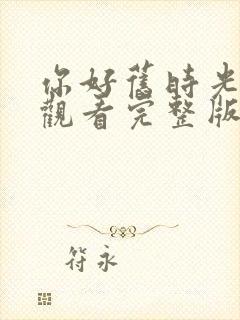 你好舊時光
觀看完整版
符永